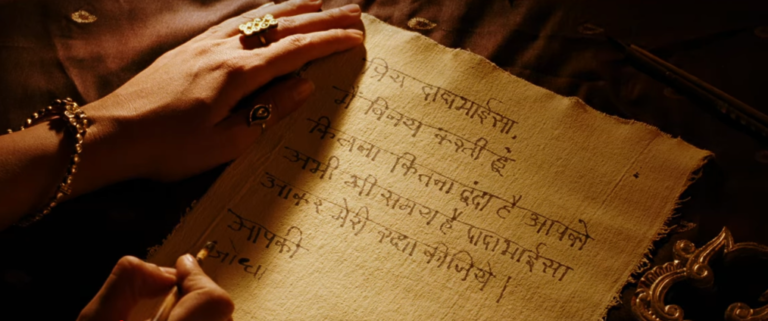 प्रिय दादाभाईसा.
मैं विनय करती हूं
कितना कितना ढूंढा है आपको
अभी भी समय है दादाभाईसा
आकर मेरी रक्षा कीजिये।
आपकी
जोधा